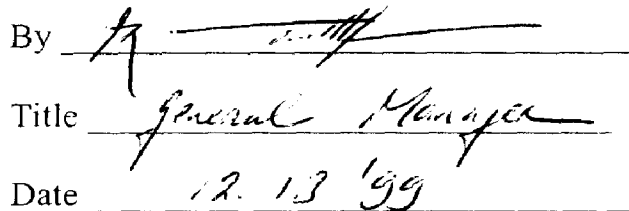 By
Title General Manager
Date 12. 13 '99